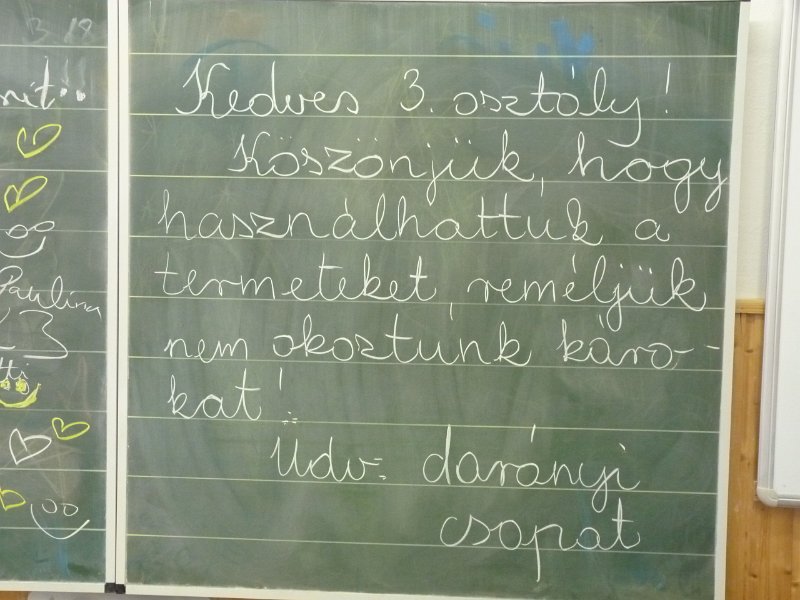 3. 18
Paulina
Kedves 3. osztály!
Köszönjük, hogy
használhattuk a
termeteket, reméljük
nem okoztunk káro-
kat!
Üdv: darányi
csapat